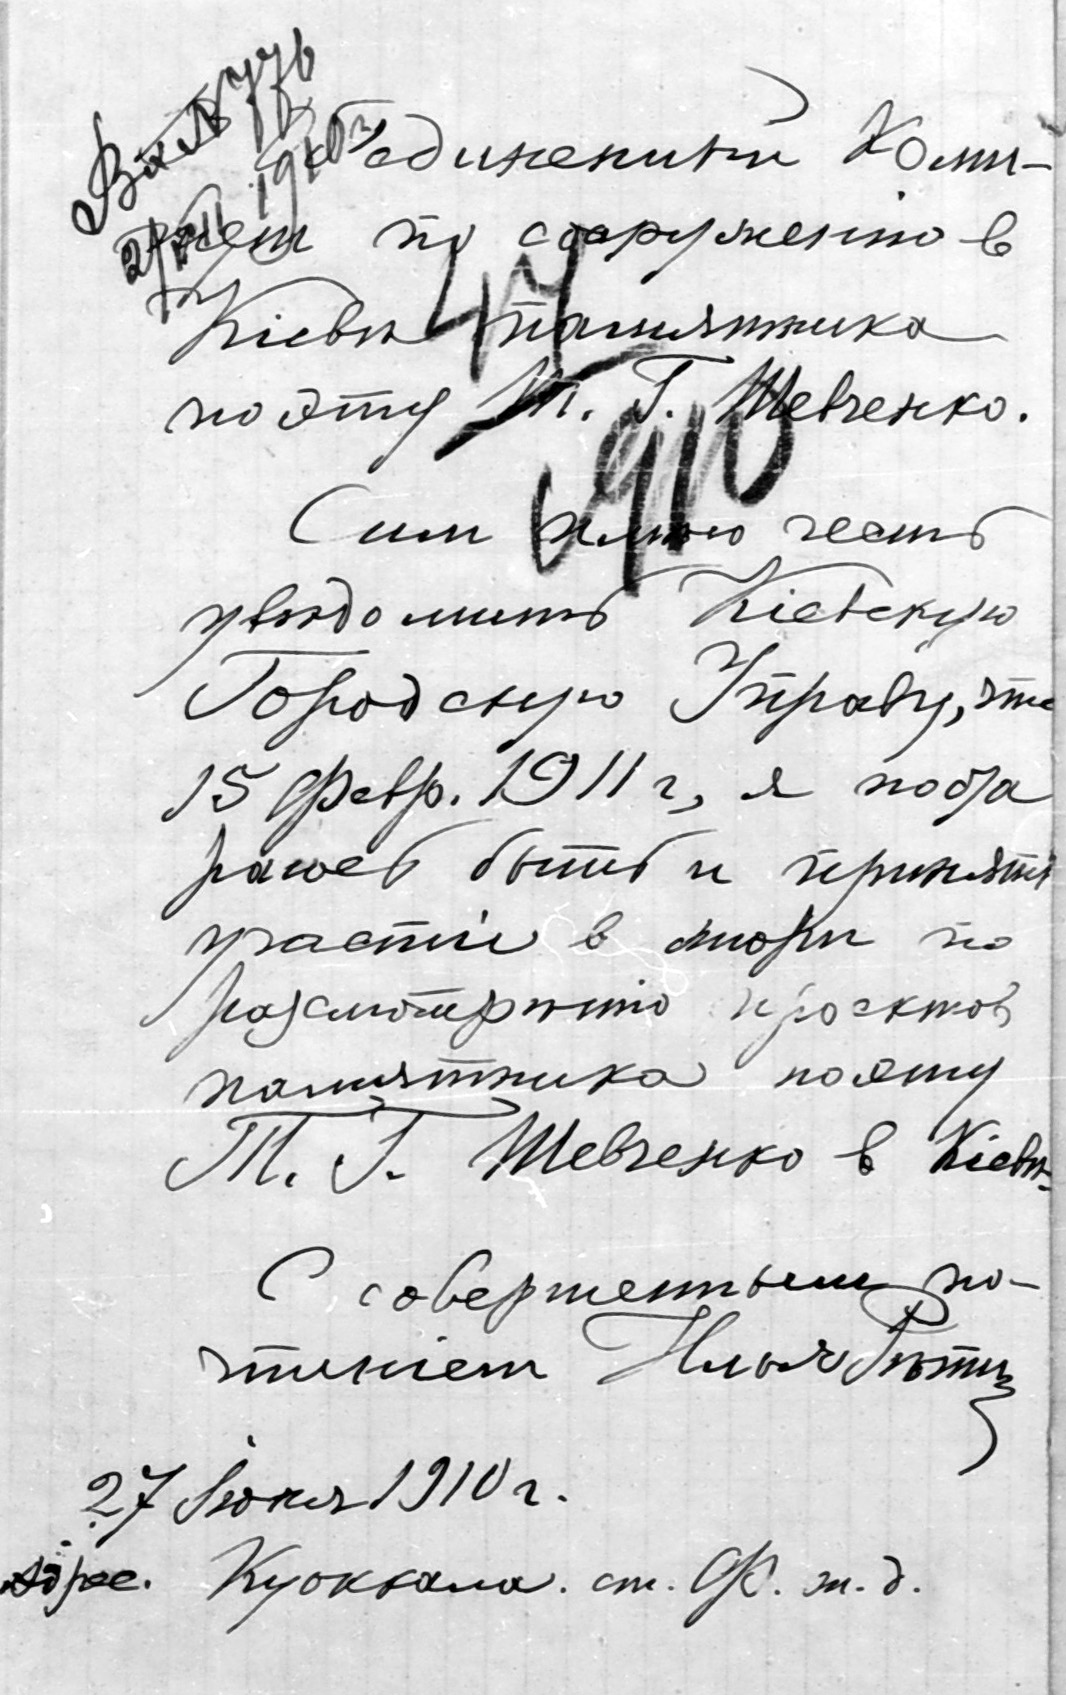 Вх. № 776
2/VII 1910
Соединенный Коми-
тет по сооружению в
Кіевѣ памятника
поэту Т. Г. Шевченко.
47
1910
Сим имѣю честь
увѣдомить Кіевскую
Городскую Управу, что
15 февр. 1911 г., я поста
раюсь быть и принять
участіи в жюри по
разсмотрѣнію проектов
памятника поэту
Т. Г. Шевченко в Кіевѣ.
С совершенным по-
чтеніем Илья Рѣпин
27 Іюня 1910 г.
Адрес. Куоккала. ст. Ф. ж. д.